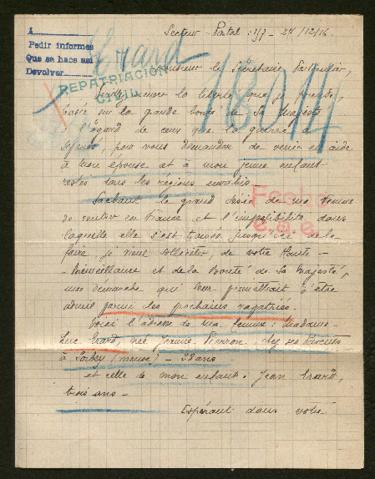 A
Pedir informes
Que se hace así
Devolver
Erard
REPATRIACIÓN
CIVIL
18014
Secteur Postal :  197 - 24/12/16
Monsieur le Secrétaire Particulier,
la liberté que je prends,
basée sur la grande bonté de Sa Majesté
à l'égard de ceux que la guerre a
pour vous demander de venir en aide
à mon épouse et à mon jeune enfant
restés dans les régions envahies.
Sachant le grand désir de ma femme
de rentrer en France et l'impossibilité dans
laquelle elle s'est trouvée jusqu'ici de le
faire, je viens solliciter, de votre Haute
Bienveillance et de la Bonté de Sa Majesté,
une démarche qui leur permettrait d'être
admis parmi les prochaines rapatriées.
Voici l'adresse de ma femme : Madame
Erard, née Jeanne chez ses
à Sorbey (Meuse) - 28 ans -
et celle de mon enfant : Jean Erard,
trois ans -
Espérant dans votre
Fecho
e.a.e.